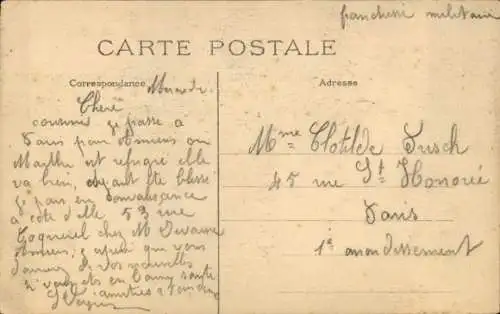 franchise militaire
CARTE POSTALE
Correspondance
Adresse
Mercredi
Chère
cousine je passe à
Paris pour Amiens ou
Marthe est refugié elle
va bien, ayant été blessé
je pars en convalescence
à côté d'elle 53 rue
chez M
que vous
de vos nouvelles
amitiés à tous
Mme Clotilde Dusch
45 rue St Honoré
Paris
1e arrondissement